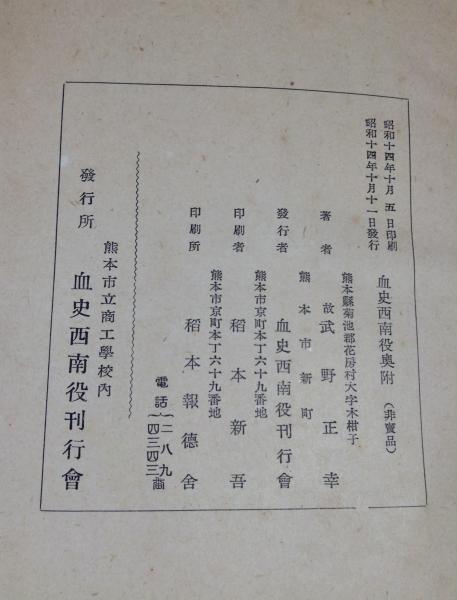 昭和十四年十月五日印刷
昭和十四年十月十一日發行
血史西南役奧附(非賣品)
熊本縣菊池郡花房村大字木柑子
著者 故武野正幸
熊本市新町
發行者 血史西南役刊行會
熊本市京町本丁六十九番地
印刷者 稻本新吾
熊本市京町本丁六十九番地
印刷所 稻本報德舍
電話
二八九
四三四三
熊本市立商工學校內
發行所 血史西南役刊行會